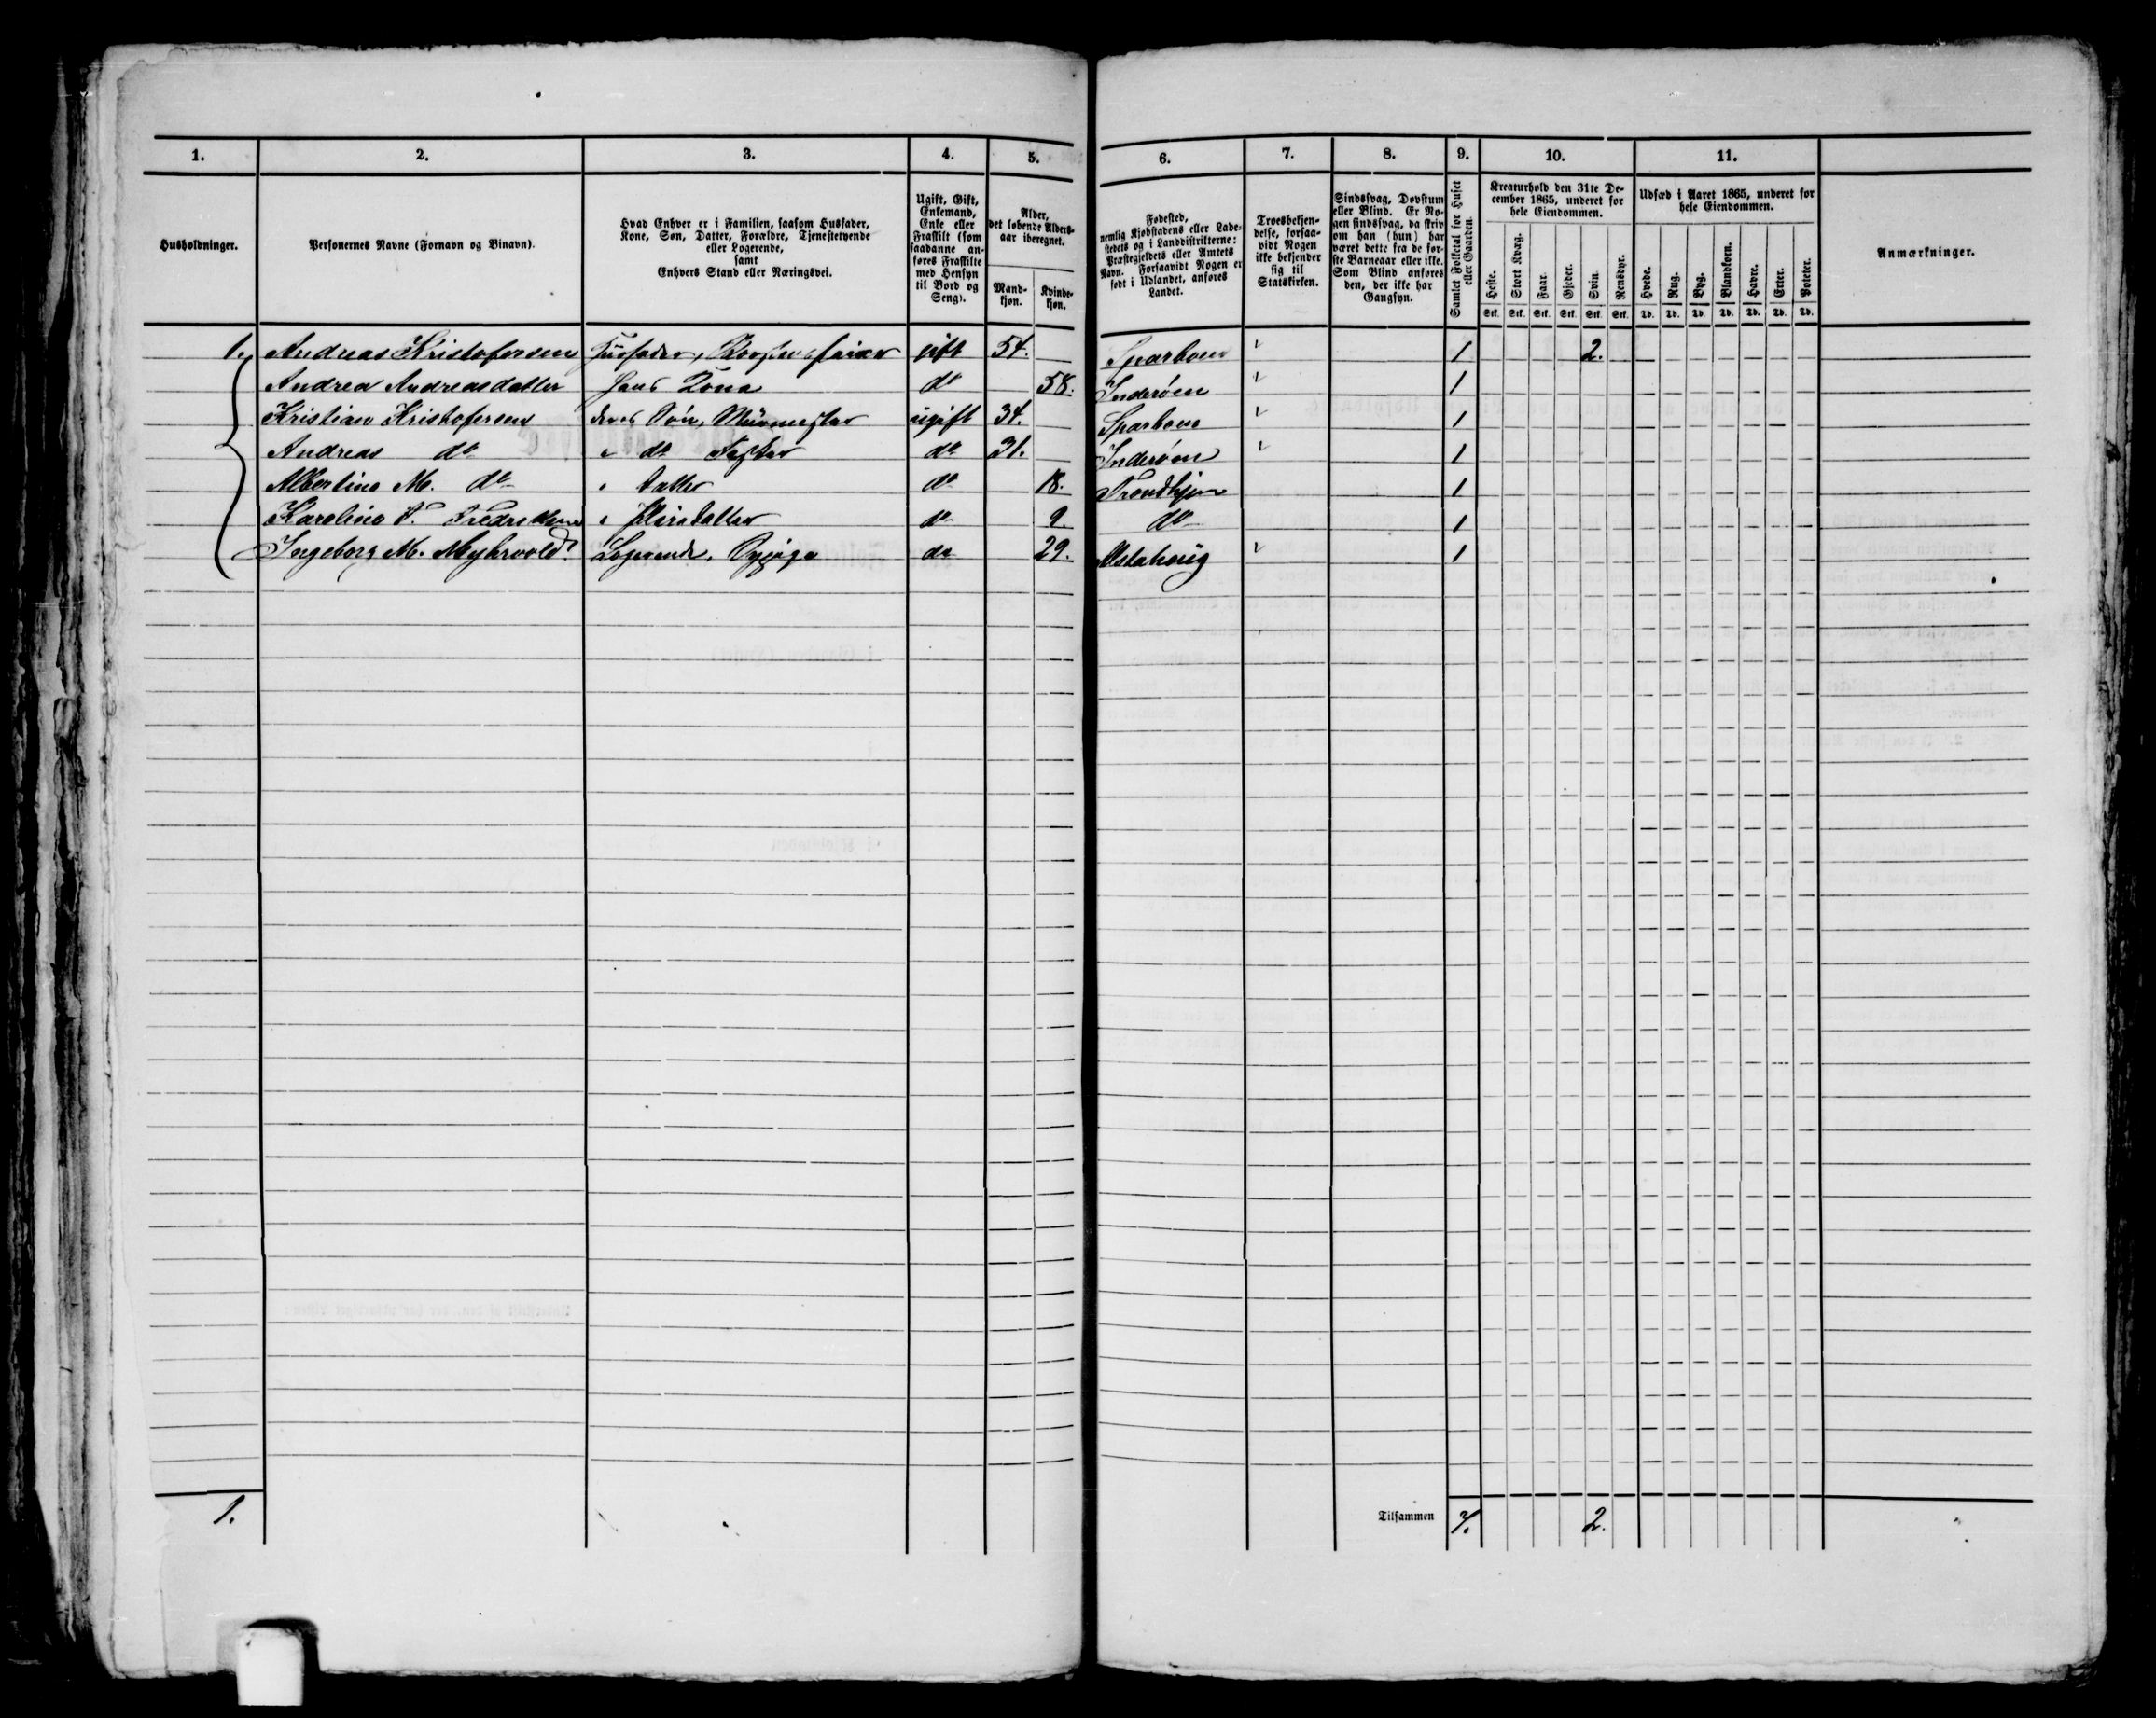 1. 2. 3. 4. 5. 6. 7. 8. 9. 10. 11.
Husholdninger.
Personernes Navne (Fornavn og Binavn).
Hvad Enhver er i Familien, saasom Husfader,
Kone, Søn, Datter, Forældre, Tjenestetyende
eller Logerende,
samt
Enhvers Stand eller Næringsvei.
Ugift, Gift,
Enkemand,
Enke eller
Fraskilt (som
saadanne an-
føres Fraskilte
med Hensyn
til Bord og
Seng).
Alder,
det løbende Alders-
aar iberegnet.
Mand-
kjøn.
Kvinde-
kjøn.
Fødested,
nemlig Kjøbstadens eller Lade-
stedets og i Landdistrikterne:
Præstegjeldets eller Amtets
Navn. Forsaavidt Nogen er
født i Udlandet, anføres
Landet.
Troesbekjen-
delse, forsaa-
vidt Nogen
ikke bekjender
sig til
Statskirken.
Sindssvag, Døvstum
eller Blind. Er No-
gen sindssvag, da skriv
om han (hun) har
været dette fra de før-
ste Barneaar eller ikke.
Som Blind anføres
den, der ikke har
Gangsyn.
Samlet Folketal for Huset
eller Gaarden.
Kreaturhold den 31te De-
cember 1865, underet for
hele Eiendommen.
Heste. Stort Kvæg. Faar. Gjeder. Svin. Rensdyr.
Stk. Stk. Stk. Stk. Stk. Stk.
Udsæd i Aaret 1865, underet for
hele Eiendommen.
Hvede. Rug. Byg. Blandkorn. Havre. Erter. Poteter.
Td. Td. Td. Td. Td. Td. Td.
Anmærkninger.
1. Andreas Kristofersen Huusfader, gift 54. Sparboen 1 2.
Andrea Andreasdatter Hans Kone do 58. Inderøen 1
Kristian Kristofersen deres Søn, Muurmester ugift 34. Sparboen 1
Andreas do " do do 31. Inderøen 1
Albertine M. do " Datter do 18. Trondhjem 1
Karoline Fredriksen " Pleiedatter do 9. do 1
Ingeborg M. Myhrvold Logerende, do 29. Alstahoug 1
1. Tilsammen 7. 2.